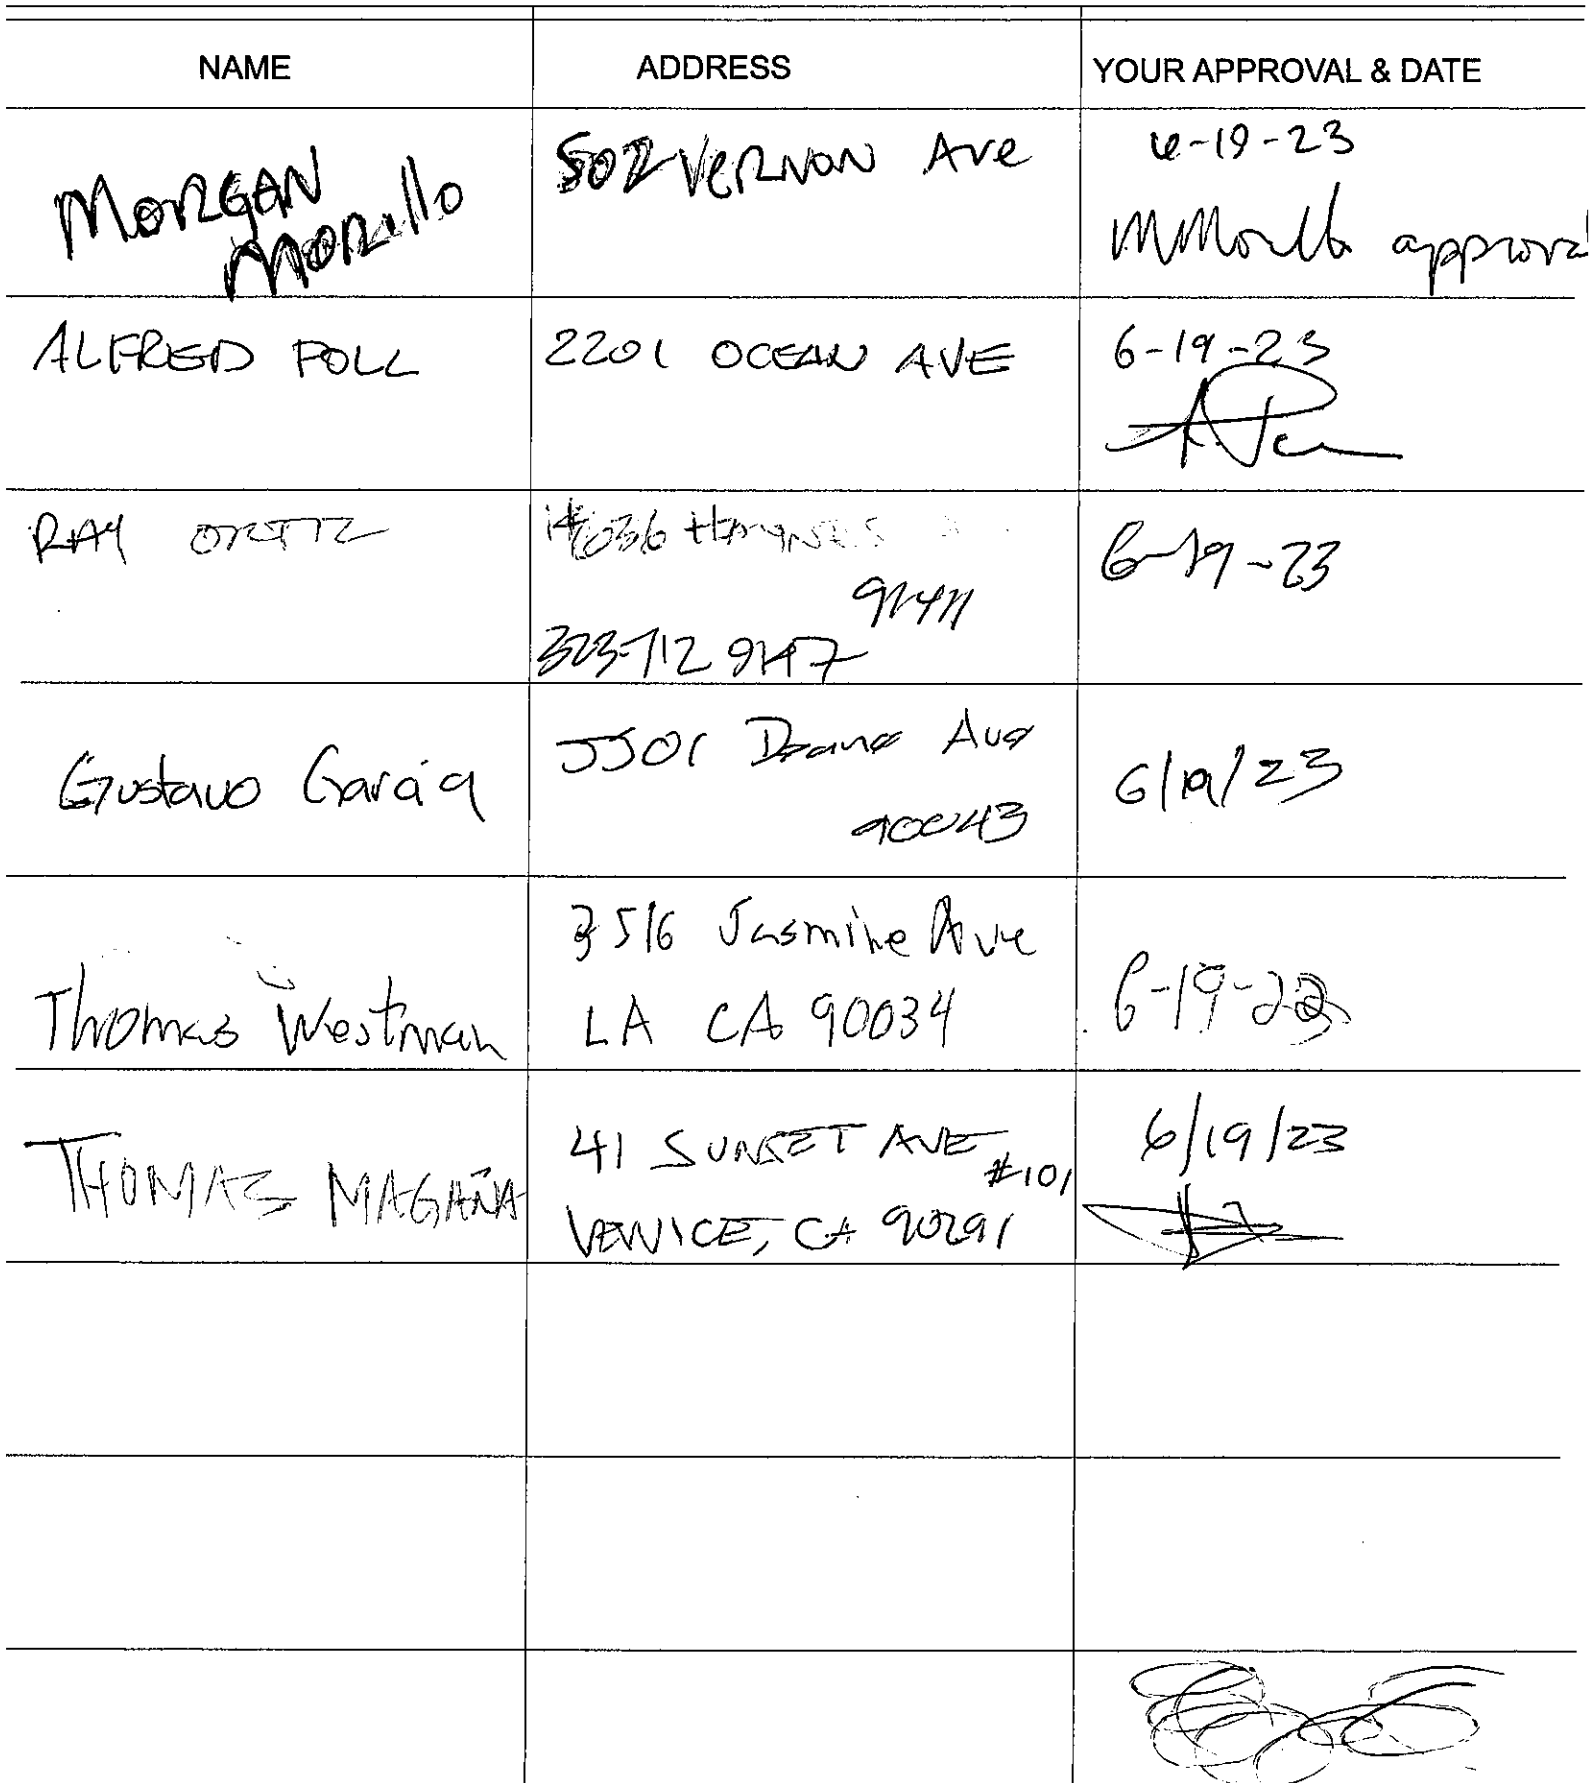 NAME ADDRESS YOUR APPROVAL & DATE
MORGAN MORillo
502 VERNON Ave
6-19-23
approval
ALFRED POLL
2201 OCEAN AVE
6-19-23
RAY ORTIZ
HAYNES
91411
323-712 9147
6-19-23
Gustavo Garcia
5501 Ave
90043
6/19/23
Thomas Westman
3516 Jasmine Ave
LA CA 90034
6-19-23
THOMAS MAGAÑA
41 SUNSET AVE #101
VENICE, CA 90291
6/19/23